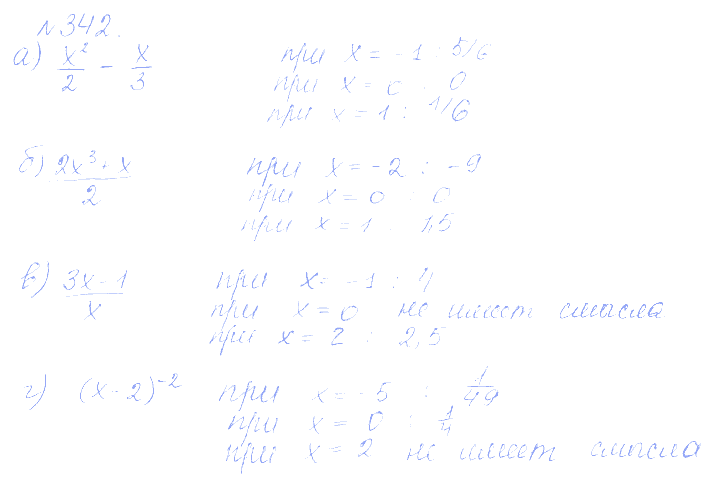 №342.
а) x²/2 - x/3 при x = -1 : 5/6
при x = 0 : 0
при x = 1 : 1/6
б) 2x³+x/2 при x = -2 : -9
при x = 0 : 0
при x = 1 : 1,5
в) 3x-1/x при x = -1 : 4
при x = 0 не имеет смысла
при x = 2 : 2,5
г) (x-2)⁻² при x = -5 : 1/49
при x = 0 : 1/4
при x = 2 не имеет смысла